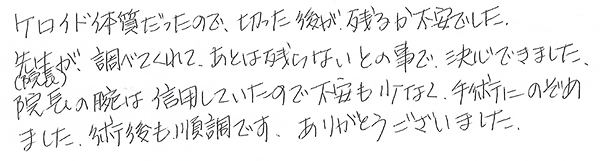 ケロイド体質だったので、切った後が、残るか不安でした。
先生が、調べてくれて、あとは残らないとの事で、決心できました、
(院長)
院長の腕は信用していたので不安も少なく、手術にのぞめ
ました。術後も順調です、ありがとうございました。